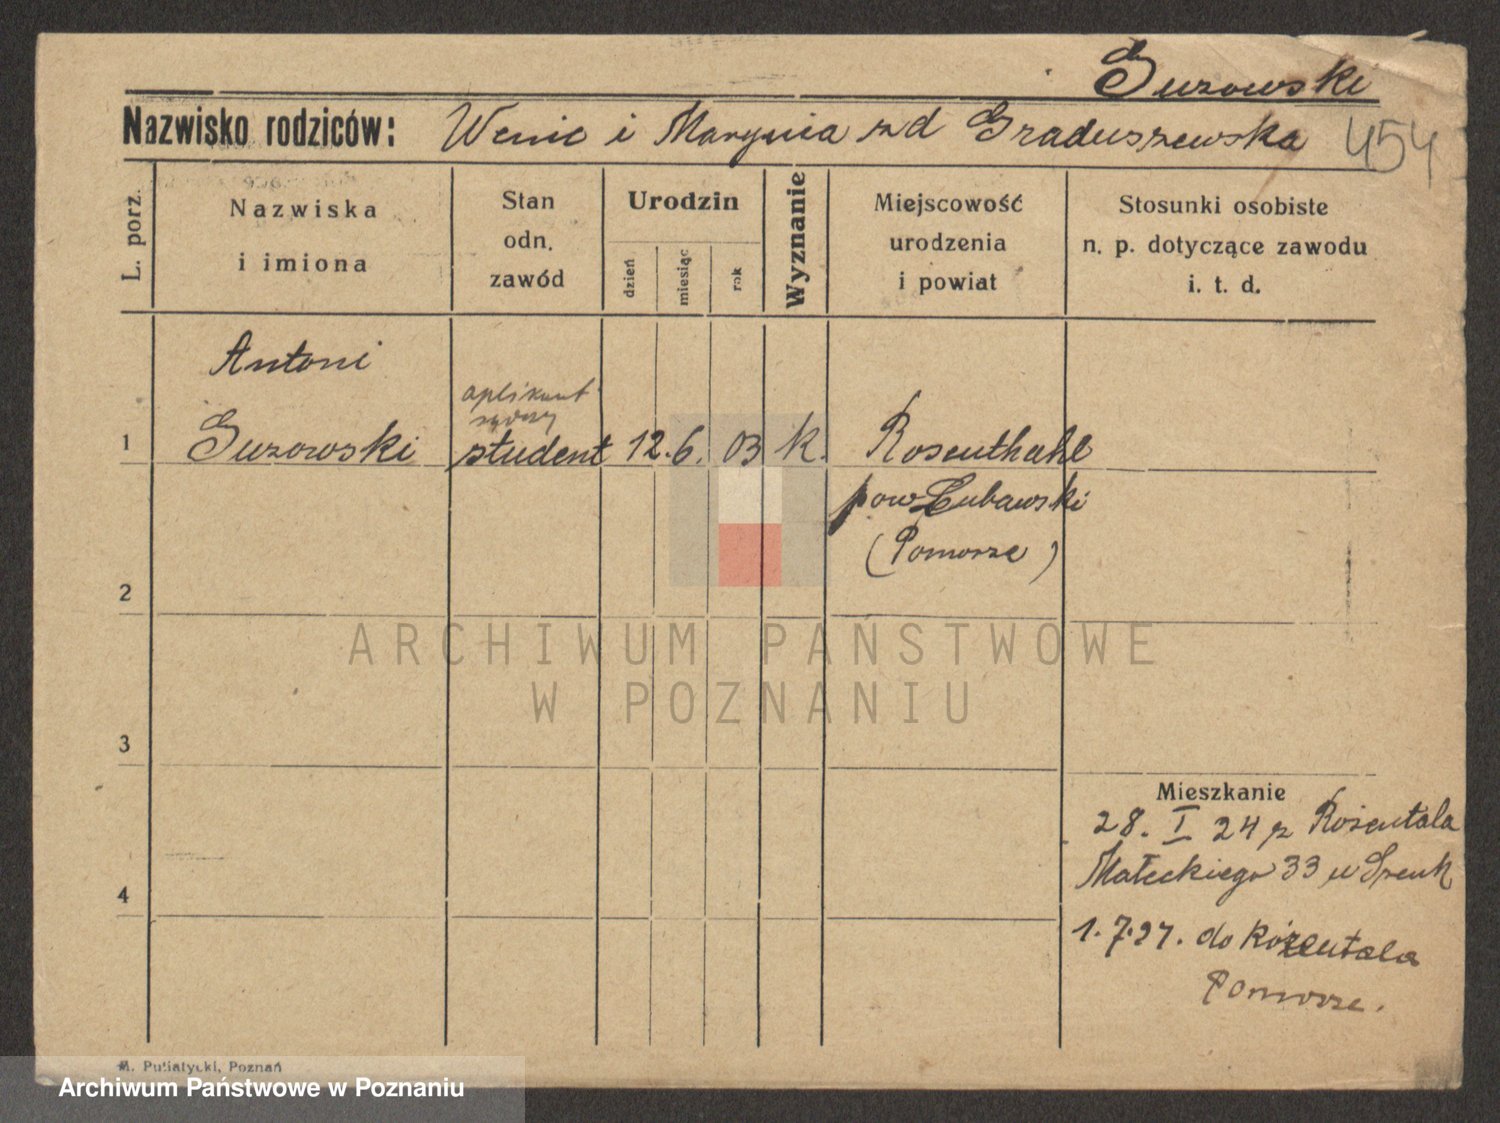 Guzowski
Nazwisko rodziców: Wenic i Marynia zd Graduszewska 454
L. porz.
Nazwiska
i imiona
Stan
odn.
zawód
Urodzin
dzień
miesiąc
rok
Wyznanie
Miejscowość
urodzenia
i powiat
Stosunki osobiste
n. p. dotyczące zawodu
i. t. d.
Antoni
aplikant
sądowy
1 Guzowski student 12. 6. 03 k. Rosenthahl
pow Lubawski
(Pomorze)
2
ARCHIWUM PAŃSTWOWE
W POZNANIU
3
Mieszkanie
28. I 24 z Rożentala
Małeckiego 33 u Szenk
4
1.7.27. do Rożentala
Pomorze.
M. Putiatycki, Poznań
Archiwum Państwowe w Poznaniu